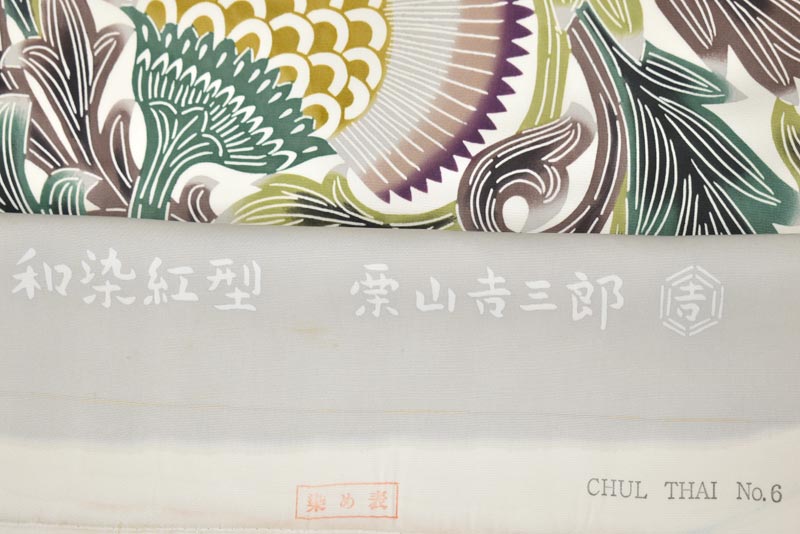 和染紅型 栗山吉三郎 吉
染め表
CHUL THAI No.6